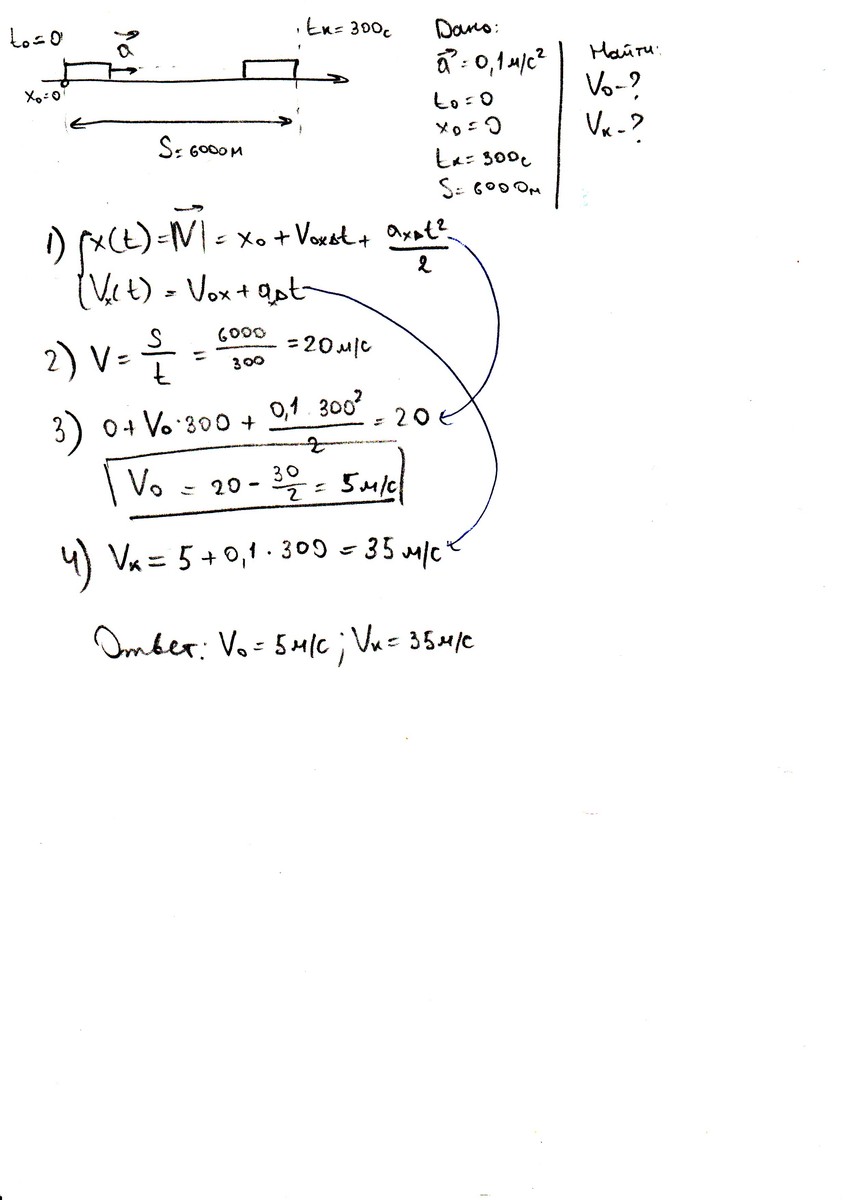 t₀=0
a⃗
tк=300с
x₀=0
S=6000м
Дано:
a⃗=0,1м/с²
t₀=0
x₀=0
tк=300с
S=6000м
Найти:
V₀-?
Vк-?
1) {x(t)=|V⃗|=x₀+V₀ₓΔt+ aₓΔt²/2
{Vₓ(t)=V₀ₓ+aₓΔt
2) V= S/t = 6000/300 =20м/с
3) 0+V₀·300+ 0,1·300²/2 =20
V₀ = 20- 30/2 = 5м/с
4) Vк=5+0,1·300=35м/с
Ответ: V₀=5м/с; Vк=35м/с